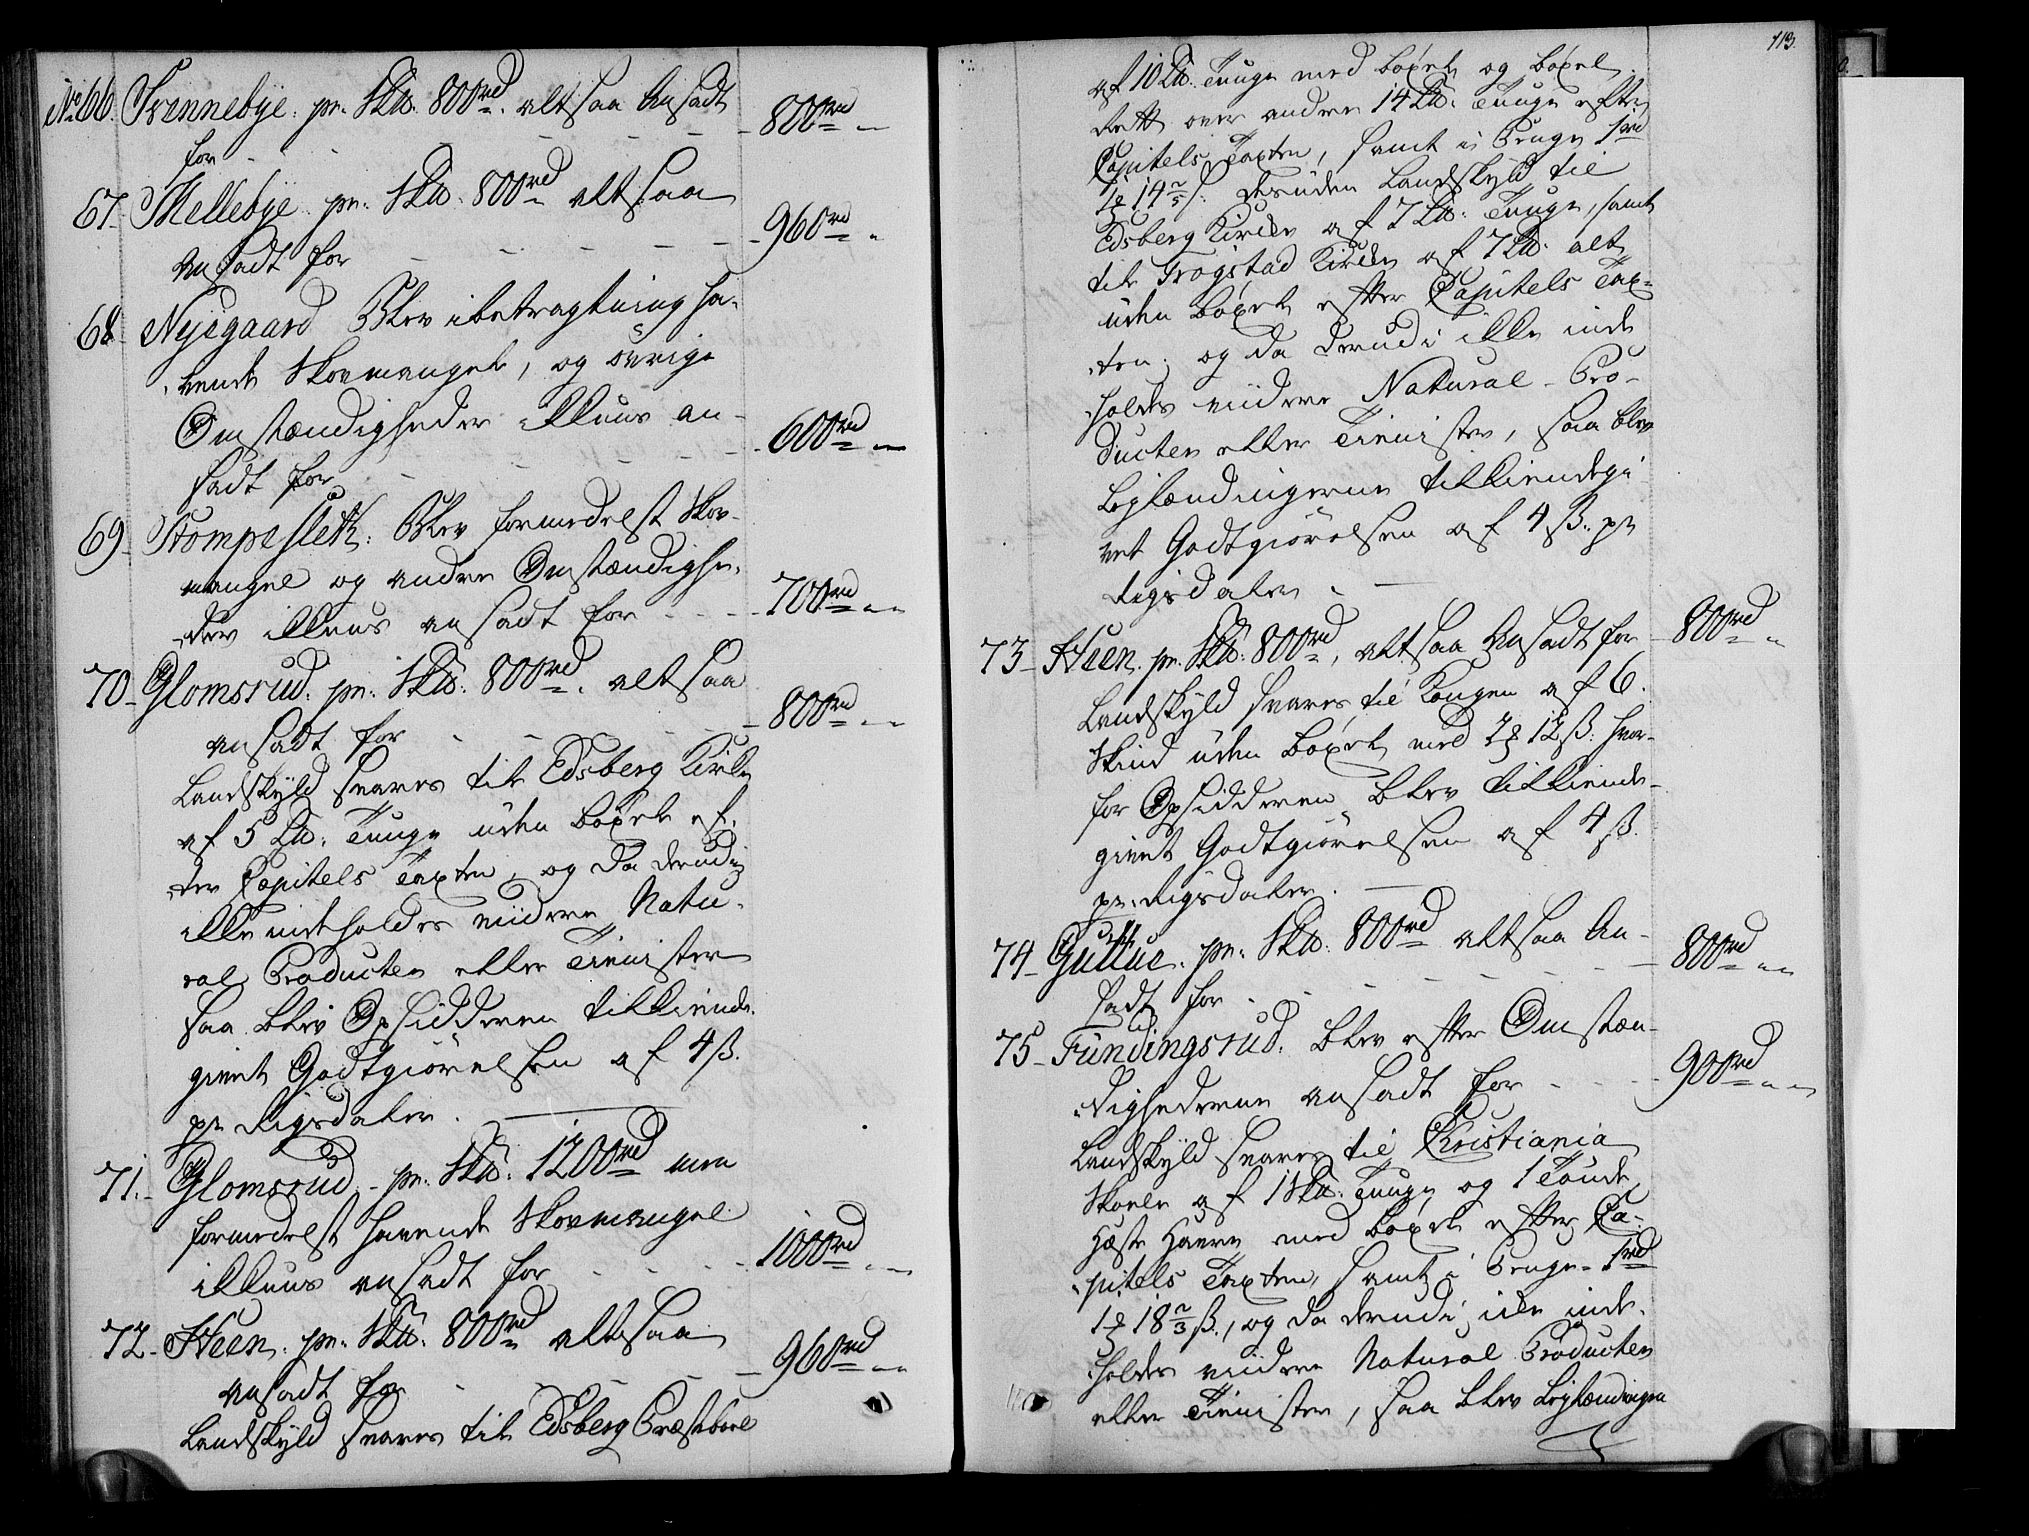 No 66. Svennebye. pr. Sk℔. 800rd. altsaa Ansadt
for - - - - - 800rd
67. Mellebye. pr. Sk℔. 800rd altsaa
Ansadt for - - - - - 960rd
68. Nyegaard Blev i betragtning ha-
vende Skovmangel, og øvrige
Omstændigheder ikkuns an-
sadt for - - - - - 600rd
69. Stompesleth. Blev formedelst Skov-
mangel og andre Omstændighe-
der ikkuns ansadt for - - - 700rd
70. Glomsrud. pr. Sk℔. 800rd. altsaa
ansadt for - - - - - 800rd
Landskyld svares til Edsberg Kirke
af 5 L℔. Tunge uden Bøxel ef-
ter Capitels Taxten, og da derudi
ikke indholdes viidere Natu-
ral Producter eller Tienister
saa blev Opsidderen tilkiende-
givet Godtgiørelsen af 4 ß.
pr. Rigsdaler.
71. Glomsrud - pr. Sk℔. 1200rd men
formedelst havende Skovmangel
ikkuns ansadt for - - - - 1000rd
72. Heen. pr. Sk℔. 800rd altsaa
ansadt for - - - - - 960rd
Landskyld svares til Edsberg Præstebol
113.
af 10 L℔. Tunge med bøxel og bøxel-
rett over andre 14 L℔. Tunge efter
Capitels Taxten, samt i Penge 1rd
1 14 2/5 ß. desuden Landskyld til
Edsberg Kirke af 7 L℔. Tunge, samt
til Trogstad Kirke af 7 L℔. alt
uden Bøxel efter Capitels Tax-
ten; og da derudi ikke inde
holdes viidere Natural-Pro-
ducter eller Tienister, saa blev
Leylændingerne tilkiendegi
vet Godtgiørelsen af 4 ß. pr
Rigsdaler.
73. Heen. pr. Sk℔. 800rd, altsaa Ansadt for - 800rd
Landskyld svares til Kongen af 6.
Skind uden Bøxel med 2 12 ß. hvor-
for Opsidderen blev tilkiende-
givet Godtgiørelsen af 4 ß.
pr. Rigsdaler.
74. Gullue. pr. Sk℔. 800rd altsaa An-
sadt for - - - - - 800rd
75. Fundingsrud. blev efter Omstæn-
dighederne ansadt for - - - - 900rd
Landskyld svares til Christiania
Skoele af 1 Sk℔. Tunge og 1 Tønde
Heste Havre med Bøxel efter Ca-
pitels Taxten, samt i Penge 1rd
1 18 2/3 ß., og da derudi ikke inde-
holdes viidere Natural Producter
eller Tienister, saa blev Leylændingen